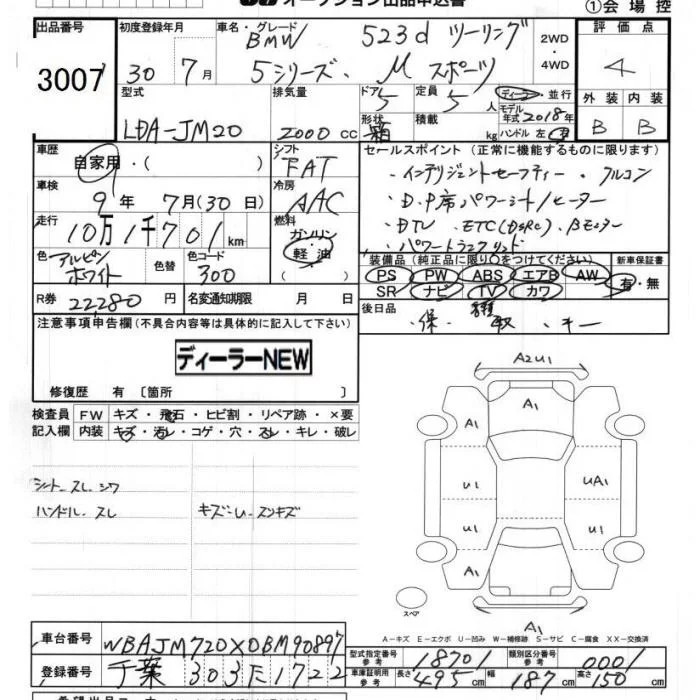 オークション出品申込書
①会場控
出品番号 3007
初度登録年月 30年 7月
車名・グレード BMW 523d ツーリング
5シリーズ、Mスポーツ
2WD・4WD
評価点 4
型式 LDA-JM20
排気量 2000 cc
ドア 5 形状 箱
定員 5人 積載 kg
ディーラー・並行
モデル年式 2018年
ハンドル 左 右
外装 内装
B B
車歴 自家用・( )
シフト FAT
セールスポイント(正常に機能するものに限ります)
・インテリジェントセーフティー・クルコン
・D.P席パワーシート/ヒーター
・DTV ETC(DSRC).Bモニター
・パワートランクリッド
車検 9年 7月(30日)
冷房 AAC
走行 10万1千701km
燃料 ガソリン・軽油・( )
色 アルピンホワイト 色替 色コード 300
装備品(純正品に限り○をつけてください)
PS PW ABS エアB AW
SR ナビ TV カワ
新車保証書 有・無
R券 22,280円 名変通知期限 月 日
後日品 ・保・ 取 ・キー
注意事項申告欄(不具合内容等は具体的に記入して下さい)
ディーラーNEW
修復歴 有〔箇所 〕
検査員記入欄
FW キズ・飛石・ヒビ割・リペア跡・×要
内装 キズ・汚レ・コゲ・穴・スレ・キレ・破レ
シート スレ シワ
ハンドル スレ キズ・U・スンキズ
A2U1
A1
A1
U1
UA1
U1
U1
A1
A1
A1
スペア
A−キズ E−エクボ U−凹み W−補修跡 S−サビ C−腐食 XX−交換済
車台番号 WBAJM720X0BM90897
登録番号 千葉 303 た 1722
型式指定番号 参考 18701
類別区分番号 参考 0001
車庫証明用 参考 長さ 495cm 幅 187cm 高さ 150cm
希望出品コーナー